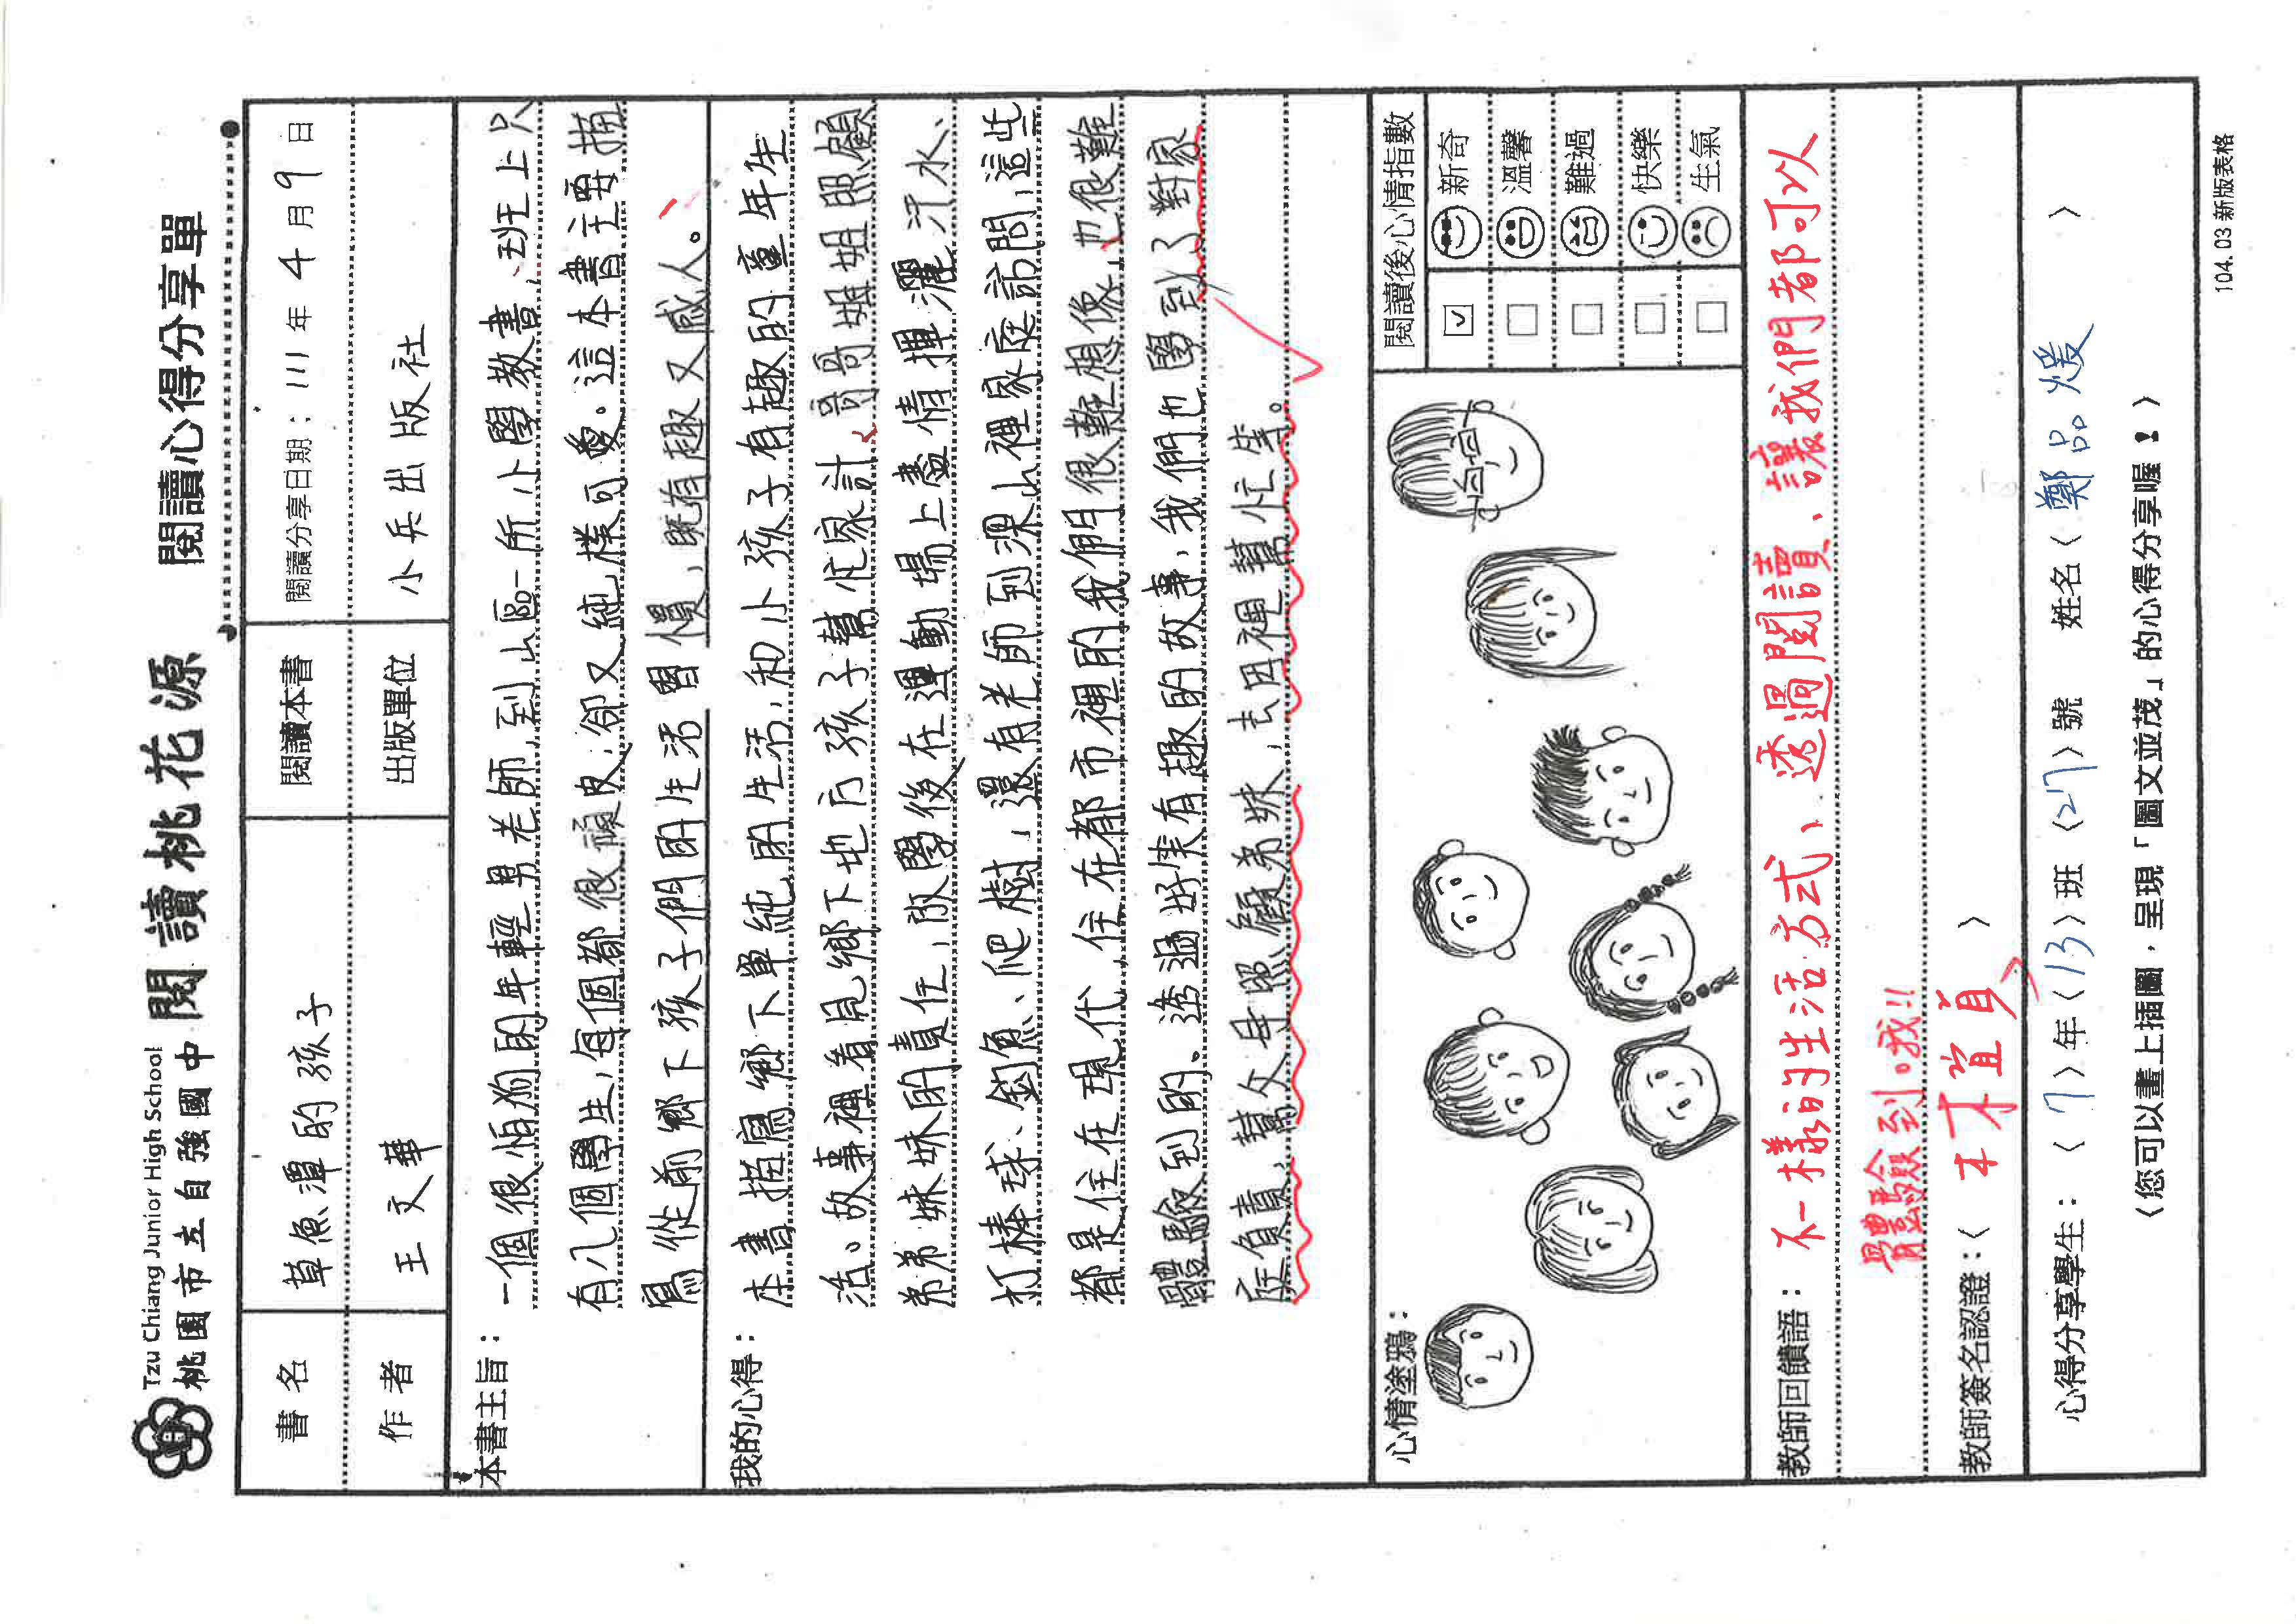 Tzu Chiang Junior High School
桃園市立自強國中 閱讀桃花源 閱讀心得分享單
書名 草魚潭的孩子 閱讀本書 閱讀分享日期：111年4月9日
作者 王文華 出版單位 小兵出版社
本書主旨：
一個很怕狗的年輕男老師，到山區一所小學教書，班上只
有八個學生，每個都很頑皮，卻又純樸可愛。這本書主要描
寫從前鄉下孩子們的生活習慣，既有趣又感人。
我的心得：
本書描寫鄉下單純的生活，和小孩子有趣的童年生
活。故事裡看見鄉下地方孩子幫忙家計、哥哥姐姐照顧
弟弟妹妹的責任，放學後在運動場上盡情揮灑汗水、
打棒球、釣魚、爬樹，還有老師到深山裡家庭訪問，這些
都是住在現代，住在都市裡的我們很難想像，也很難
體驗到的、透過好笑有趣的故事，我們也學到了對家
庭負責，幫父母照顧弟妹，去田裡幫忙等。
心情塗鴉：
閱讀後心情指數
新奇
溫馨
難過
快樂
生氣
教師回饋語：不一樣的生活方式、透過閱讀、讓我們都可以
體驗到哦!!
教師簽名認證：〈 林宜貞 〉
心得分享學生：〈7〉年〈13〉班〈27〉號 姓名〈鄭品煖 〉
〈您可以畫上插圖，呈現「圖文並茂」的心得分享喔！〉
104.03新版表格